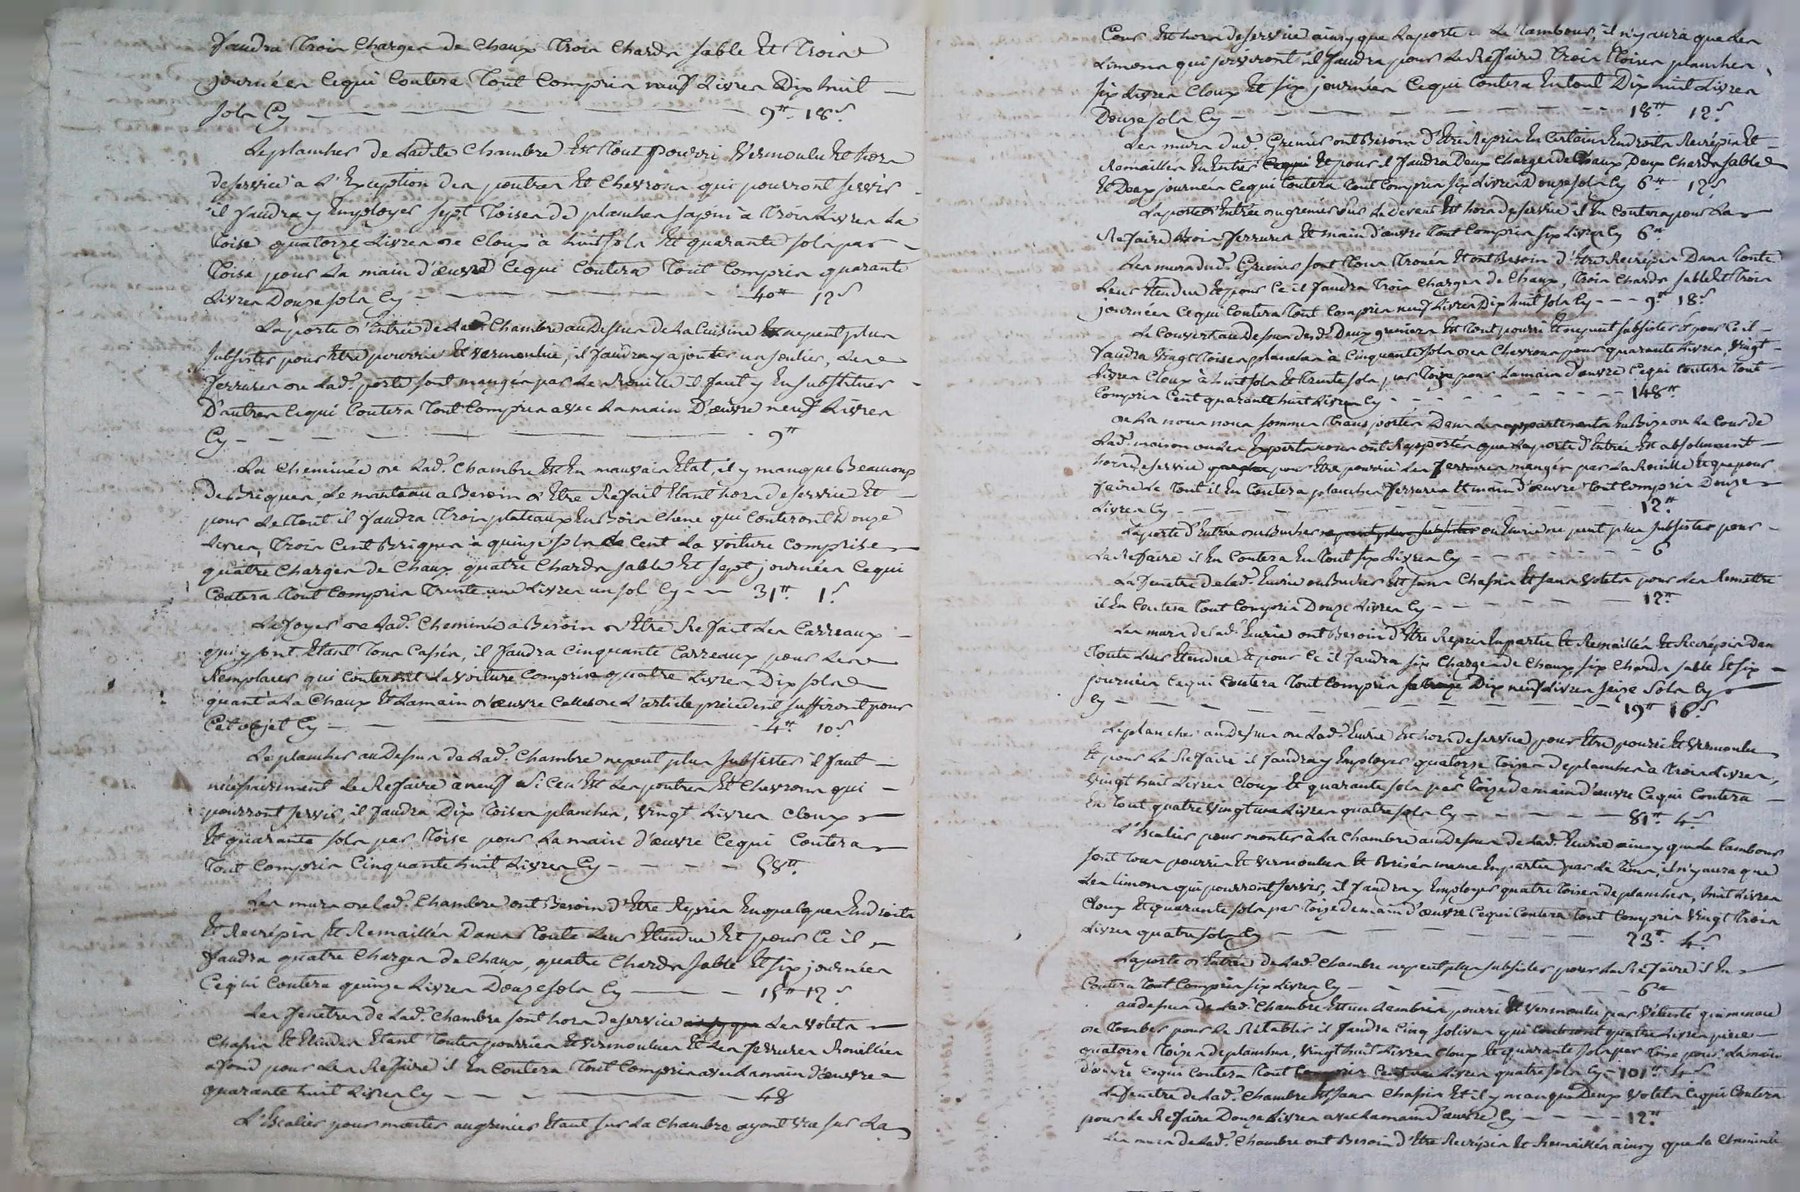 faudra trois charges de chaux trois chards sable et trois
journées cequi coutera tout compris neuf livres Dix huit
sols Cy 9tt 18s
Le plancher de Ladte Chambre Est tout pourri vermoulu Et hors
deservice à L'Exception des poutres Et Chevrons qui pourront servir
il faudra y Employer sept toises de planches sapin à trois Livres La
toise quatorze Livres de Cloux à huit sols Et quarante sols par
toise pour La main d'œuvre cequi coutera tout compris quarante
Livres Douze sols Cy 40tt 12s
La porte d'Entrée de Lade Chambre au Dessus de La Cuisine ne peut plus
subsister pour Etre pourrie Et vermoulue, il faudra y ajouter un seulier, Les
ferrures de Lade porte sont mangées par La Rouille il faut y En substituer
D'autres cequi coutera tout compris avec La main D'œuvre neuf Livres
Cy 9tt
La Cheminée de Lade Chambre Est En mauvais Etat, il y manque Beaucoup
De Briques, Le manteau a Besoin d'Etre Refait Etant hors deservice Et
pour Le tout il faudra trois plateaux En Bois chene qui couteront Douze
Livres, trois Cent Briques à quinze sols Le Cent La voiture comprise
quatre charges de chaux quatre chards sable Et sept journées cequi
coutera tout compris trente une Livres un sol Cy 31tt 1s
Le foyer de Lade Cheminée a Besoin d'Etre Refait Les Carreaux
qui y sont Etant tous Cassés, il faudra cinquante Carreaux pour Les
Remplacer qui couteront La voiture comprise quatre Livres Dix sols
quant à La Chaux Et La main d'œuvre Celles de L'article précédent suffiront pour
Cet objet Cy 4tt 10s
Le plancher au Dessus de Lade Chambre ne peut plus subsister il faut
nécessairement Le Refaire à neuf si Ce n'Est Les poutres Et Chevrons qui
pourront servir, il faudra Dix toises planches, vingt Livres Cloux
Et quarante sols par toise pour La main d'œuvre cequi coutera
tout compris Cinquante huit Livres Cy 58tt
Les murs de Lade Chambre ont Besoin d'Etre Repris En quelques Endroits
Et Recrépis Et Remaillés Dans toute Leur Etendue Et pour Ce il
faudra quatre charges de chaux, quatre chards sable Et six journées
cequi coutera quinze Livres Douze sols Cy 15tt 12s
Les fenetres de Lade Chambre sont hors deservice ainsy que Les volets
Chassis Et Etant toutes pourries Et vermoulues Et Les ferrures Rouillées
à fond pour Les Refaire il En coutera tout compris avec La main d'œuvre
quarante huit Livres Cy 48
L'Escalier pour monter au grenier Etant sur La Chambre ayant vue sur La
Cour Est hors deservice ainsy que La porte Le tambour, il n'y aura que Les
Limons qui serviront, il faudra pour Le Refaire trois toises planches
six Livres Cloux Et six journées cequi coutera En tout Dix huit Livres
Douze sols Cy 18tt 12s
Les murs dud. Grenier ont Besoin d'Etre Repris En certains Endroits Recrépis Et
Remaillés En Entier Et pour il faudra Deux charges de chaux, Deux chards sable
Et Deux journées cequi coutera tout compris six Livres Douze sols Cy 6tt 12s
La porte d'Entrée du grenier sur Le Devant Est hors deservice il En coutera pour La
Refaire Bois ferrures Et main d'œuvre tout compris six Livres Cy 6tt
Les murs dud. Grenier sont tous troués Et ont Besoin d'Etre Recrépis Dans toute
Leur Etendue Et pour Ce il faudra trois charges de chaux, trois chards sable Et trois
journées cequi coutera tout compris neuf Livres Dix huit sols Cy 9tt 18s
Le Couvert au Dessus desd. Deux greniers Est tout pourri Et ne peut subsister Et pour Ce il
faudra vingt toises planches à cinquante sols des Chevrons pour quarante Livres, vingt
Livres Cloux à huit sols Et trente sols par toise pour La main d'œuvre cequi coutera tout
compris Cent quarante huit Livres Cy 148tt
De Là nous nous sommes transportés Dans Les appartements En Bize de La Cour de
Lade maison où Les Experts nous ont Rapporté que La porte d'Entrée Est absolument
hors deservice pour Etre pourrie Les ferrures mangées par La Rouille Et que pour
faire Le tout il En coutera planches ferrures Et main d'œuvre tout compris Douze
Livres Cy 12tt
La porte d'Entrée du Bucher ne peut plus subsister ou Ecurie ne peut plus subsister pour
La Refaire il En coutera En tout six Livres Cy 6
La fenetre de Lade Ecurie ou Bucher Est sans Chassis Et sans volets pour Les Remettre
il En coutera tout compris Douze Livres Cy 12tt
Les murs de Lade Ecurie ont Besoin d'Etre Repris En partie Et Remaillés Et Recrépis Dans
toute Leur Etendue Et pour Ce il faudra six charges de chaux six chards sable Et six
journées cequi coutera tout compris Dix neuf Livres seize sols Cy
Cy 19tt 16s
Le plancher au Dessus de Lade Ecurie Est hors deservice pour Etre pourri Et vermoulu
Et pour Le Refaire il faudra y Employer quatorze toises de planches à trois Livres,
vingt huit Livres Cloux Et quarante sols par toise de main d'œuvre cequi coutera
En tout quatre vingt une Livres quatre sols Cy 81tt 4s
L'Escalier pour monter à La Chambre au Dessus de Lade Ecurie ainsy que Le tambour
sont tous pourris Et vermoulus Et Brisés meme En partie par Le tems, il n'y aura que
Les limons qui pourront servir, il faudra y Employer quatre toises de planches, huit Livres
Cloux Et quarante sols par toise de main d'œuvre cequi coutera tout compris vingt trois
Livres quatre sols Cy 23tt 4s
La porte d'Entrée de Lade Chambre ne peut plus subsister pour La Refaire il En
coutera tout compris six Livres Cy 6tt
au Dessus de Lade Chambre Est un Lambris pourri Et vermoulu par vétusté qui menace
de tomber pour Le Rétablir il faudra Cinq solives qui couteront quatre Livres piece
quatorze toises de planches, vingt huit Livres Cloux Et quarante sols par toise pour La main
d'œuvre cequi coutera tout compris Cent une Livres quatre sols Cy 101tt 4s
La fenetre de Lade Chambre Est sans Chassis Et il y manque Deux volets cequi coutera
pour Le Refaire Douze Livres avec La main d'œuvre Cy 12tt
Les murs de Lade Chambre ont Besoin d'Etre Recrépis Et Remaillés ainsy que La Cheminée